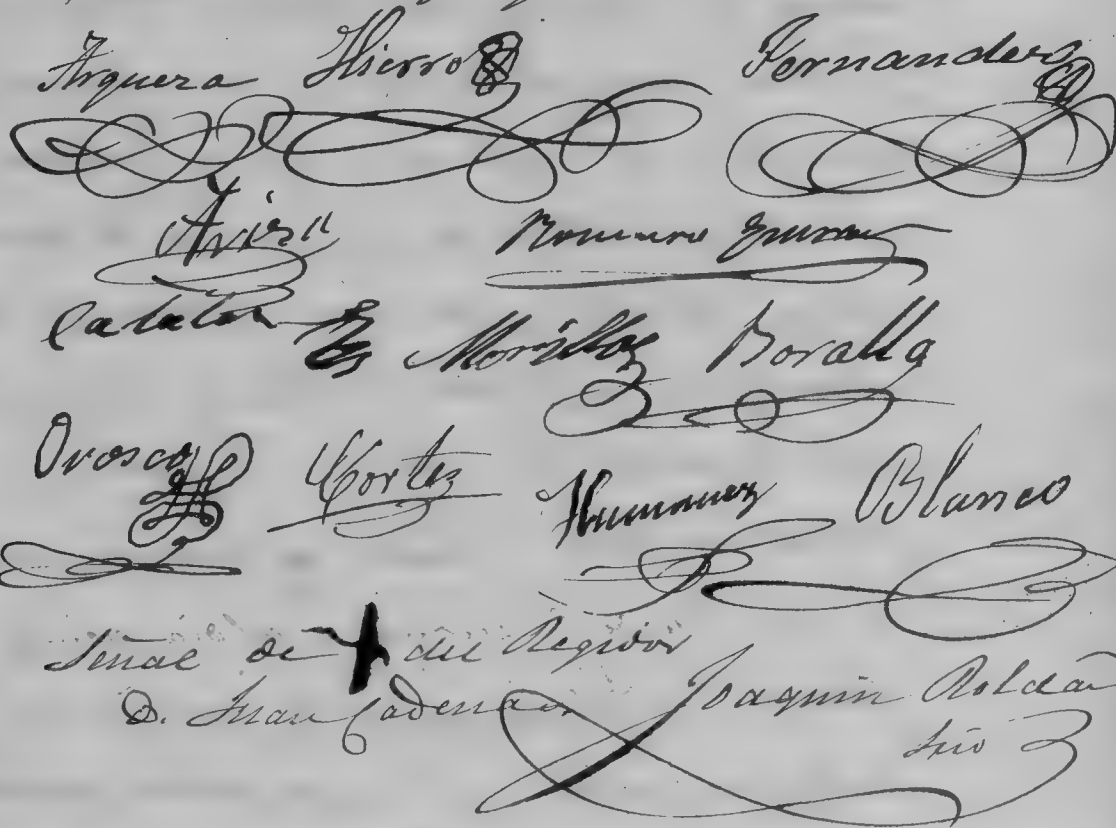 Arquera Hierro Fernandez
Ariza Romero
Catalan Morillo Boralla
Orosco Cortez Humanez Blanco
Señal de + del Regidor
D. Juan Cadenas Joaquin Roldan
Srio